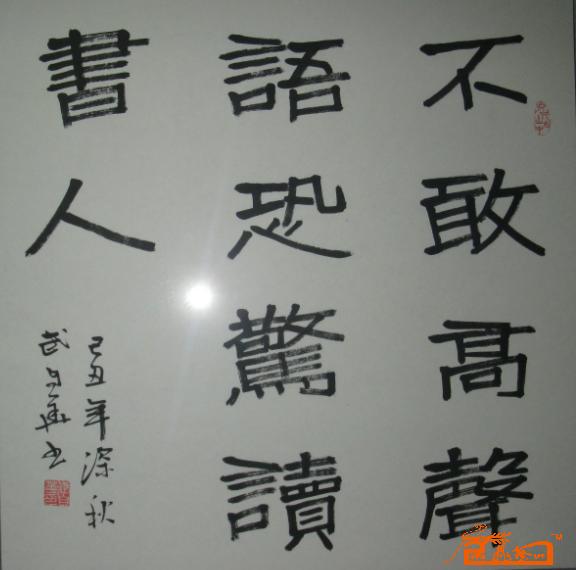 不敢高聲
語恐驚讀
書人
己丑年深秋